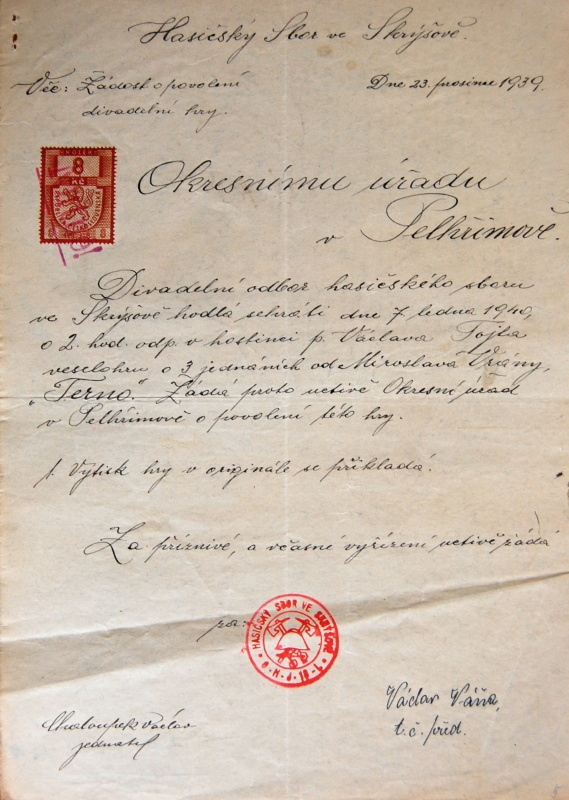 Hasičský Sbor ve Skrýšově.
Věc: Žádost o povolení
divadelní hry.
Dne 23. prosince 1939.
KOLEK
8
Kč
8 8
Okresnímu úřadu
v Pelhřimově.
Divadelní odbor hasičského sboru
ve Skrýšově hodlá sehráti dne 7 ledna 1940,
o 2. hod. odp. v hostinci p. Václava Fojta
veselohru o 3 jednáních od Miroslava Vrány,
"Terno." Žádá proto uctivě Okresní úřad
v Pelhřimově o povolení této hry.
1. Výtisk hry v originále se přikládá.
Za příznivé, a včasné vyřízení uctivě žádá
HASIČSKÝ SBOR VE SKRÝŠOVĚ
Chaloupek Václav
jednatel
Václav Váňa,
t. č. před.